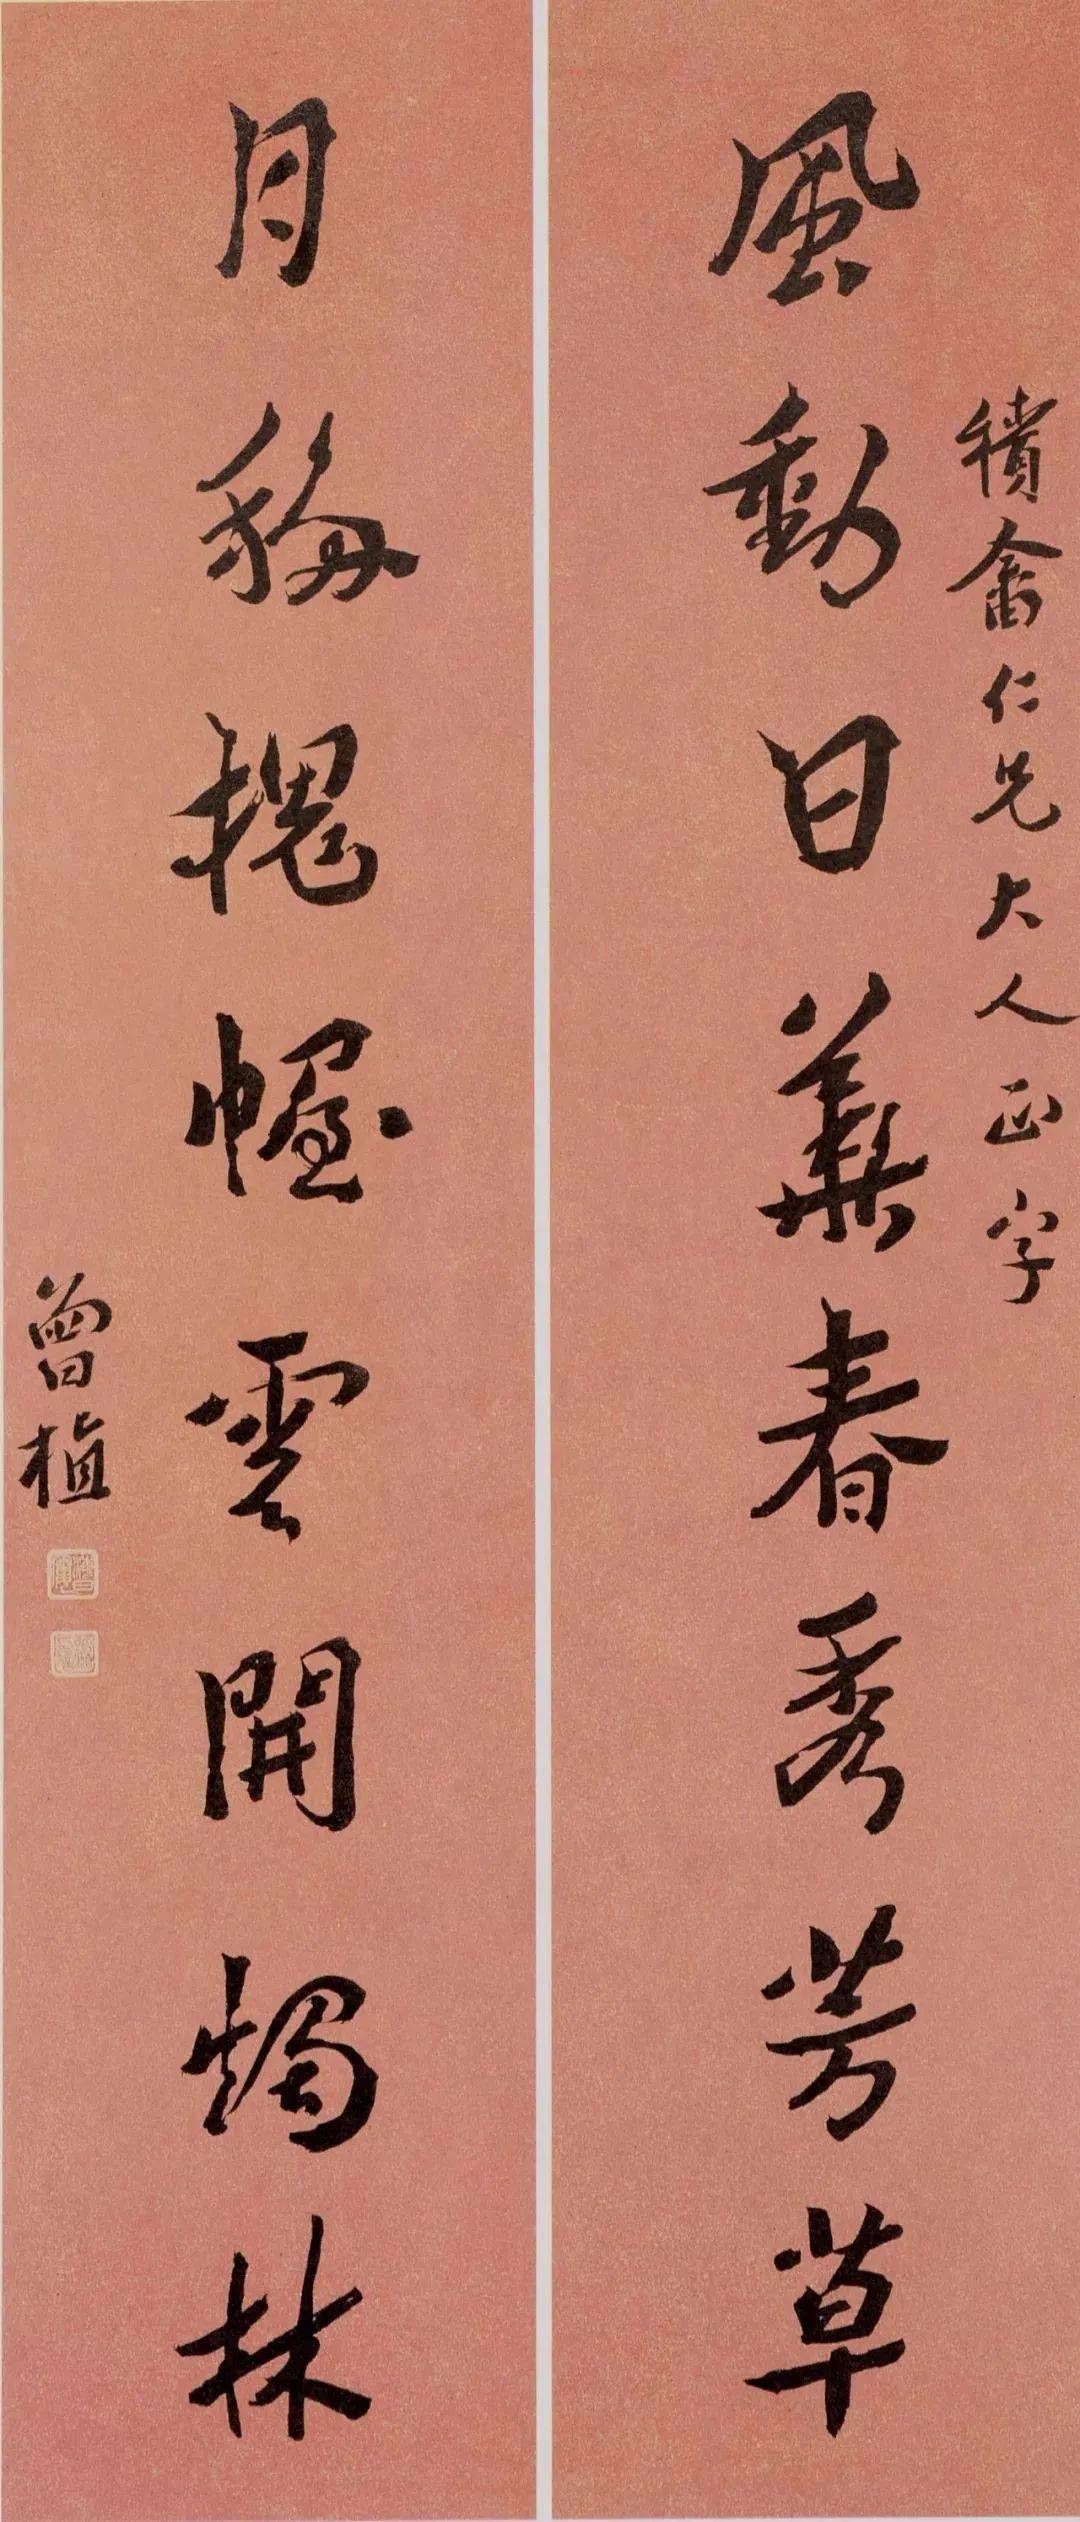 積畬仁兄大人正字
風動日華春秀芳草
月稱槐幄雲開燭林
曾植